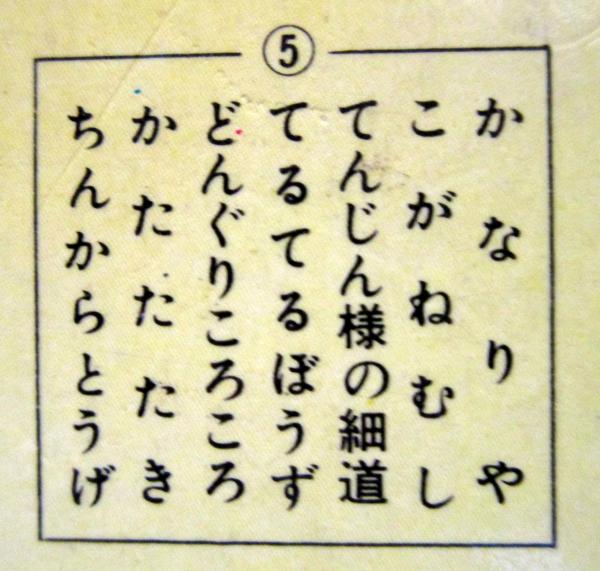 ⑤
かなりや
こがねむし
てんじん様の細道
てるてるぼうず
どんぐりころころ
かたたたき
ちんからとうげ